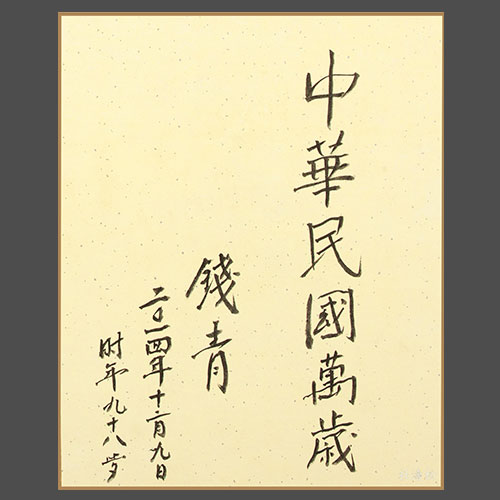 中華民國萬歲
錢青
二〇一四年十二月九日
时年九十八岁